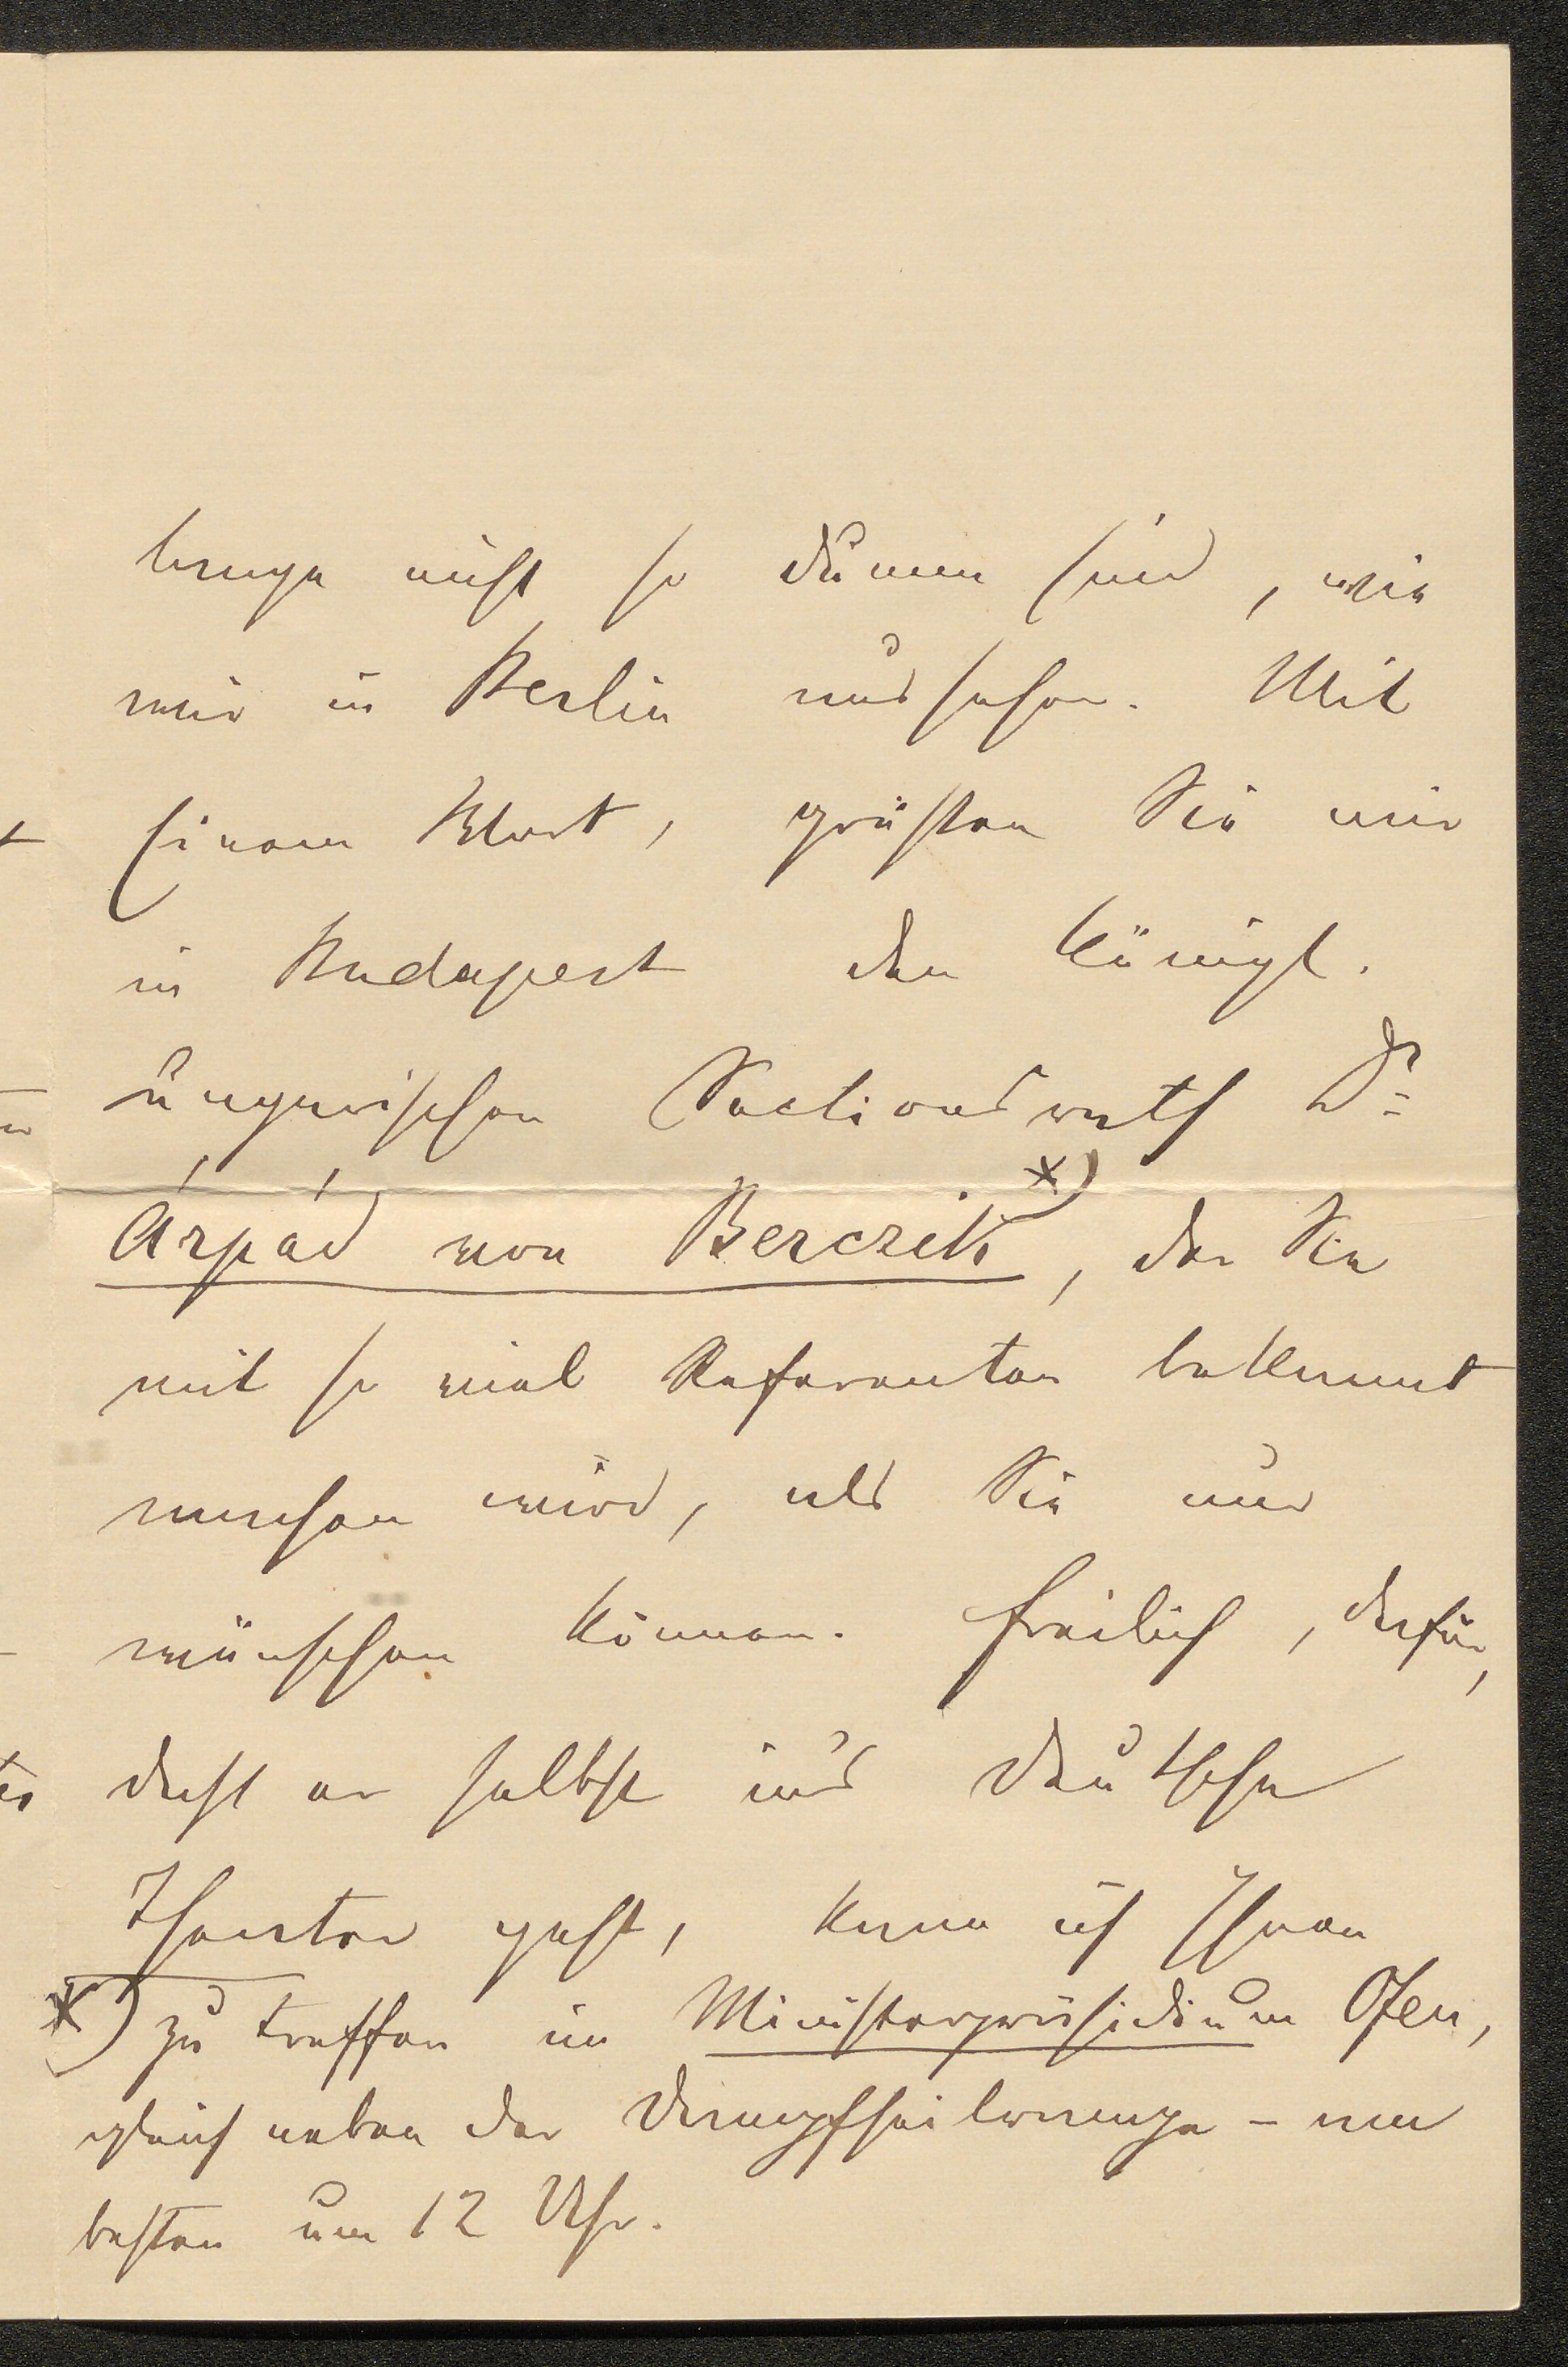 lange nicht so dumm sind, wie
wir in Berlin aussehen. Mit
Einem Wort, grüßen Sie mir
in Budapest den königl.
ungarischen Sectionsrath Dr.
Árpád von Berczik *), der Sie
mit so viel Referenten bekannt
machen wird, als Sie nur
wünschen können. Freilich, dafür,
daß er selbst ins Deutsche
Theater geht, kann ich Ihnen
*) zu treffen im Ministerpräsidium Ofen,
gleich neben der Dampfseilrampe - am
besten um 12 Uhr.